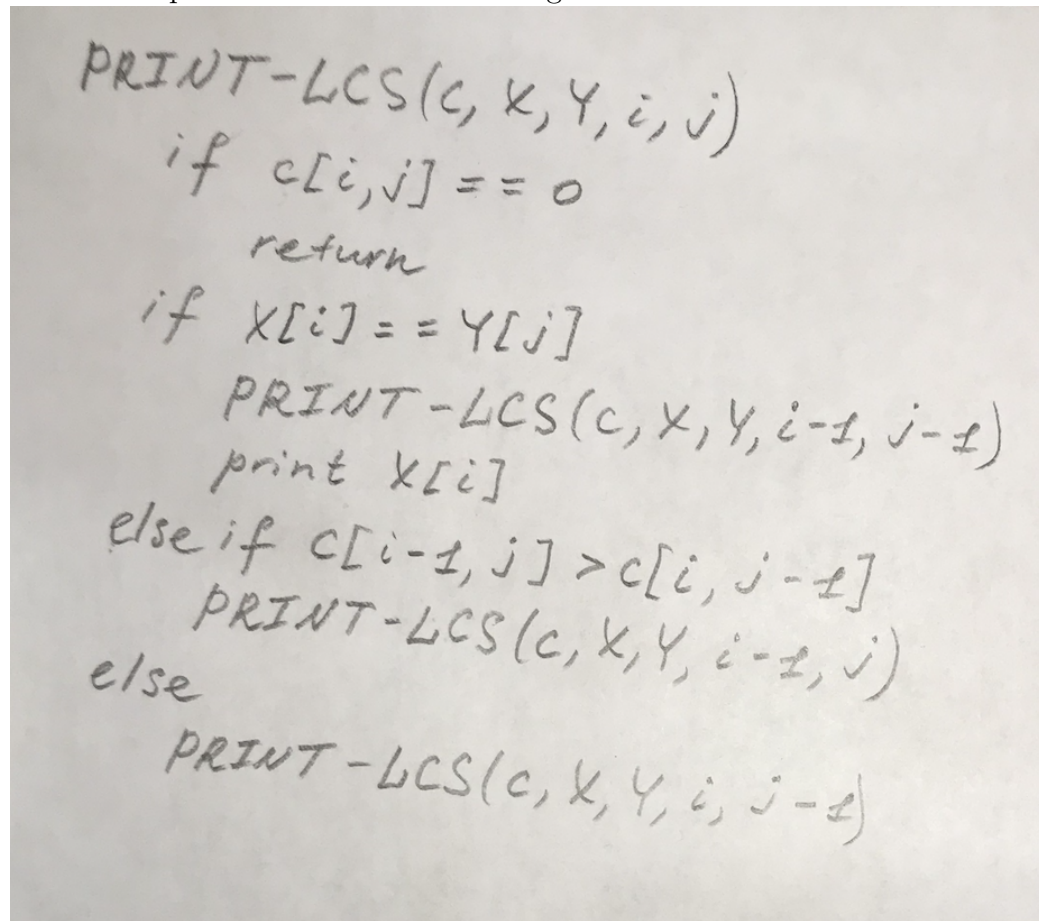 PRINT-LCS(c, X, Y, i, j)
if c[i,j] == 0
return
if X[i] == Y[j]
PRINT-LCS(c, X, Y, i-1, j-1)
print X[i]
else if c[i-1, j] > c[i, j-1]
PRINT-LCS(c, X, Y, i-1, j)
else
PRINT-LCS(c, X, Y, i, j-1)